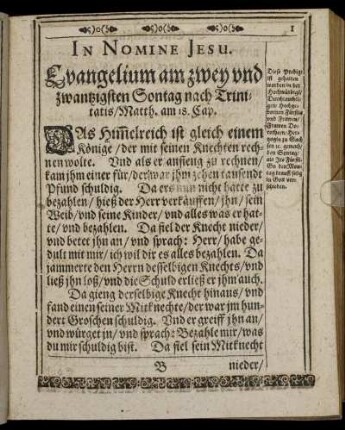 1
IN NOMINE JESU.
Evangelium am zwey vnd
zwantzigsten Sontag nach Trini-
tatis/Matth. am 18. Cap.
DAs Himelreich ist gleich einem
Könige/der mit seinen Knechten rech-
nen wolte. Vnd als er anfieng zu rechnen/
kam jhm einer für/der war jhm zehen tausendt
Pfund schuldig. Da ers nun nicht hatte zu
bezahlen/hieß der Herr verkäuffen/jhn/sein
Weib/vnd seine Kinder/vnd alles was er hat-
te/vnd bezahlen. Da fiel der Knecht nieder/
vnd betet jhn an/vnd sprach: Herr/habe ge-
dult mit mir/ich wil dir es alles bezahlen. Da
jammerte den Herrn desselbigen Knechts/vnd
ließ jhn loß/vnd die Schuld erließ er jhm auch.
Da gieng derselbige Knecht hinaus/vnd
fand einen seiner Mitknechte/der war jm hun-
dert Groschen schuldig. Vnd er greiff jhn an/
vnd würget jn/vnd sprach: Bezahle mir/was
du mir schuldig bist. Da fiel sein Mitknecht
B nieder/
Diese Predigt
ist gehalten
worden in der